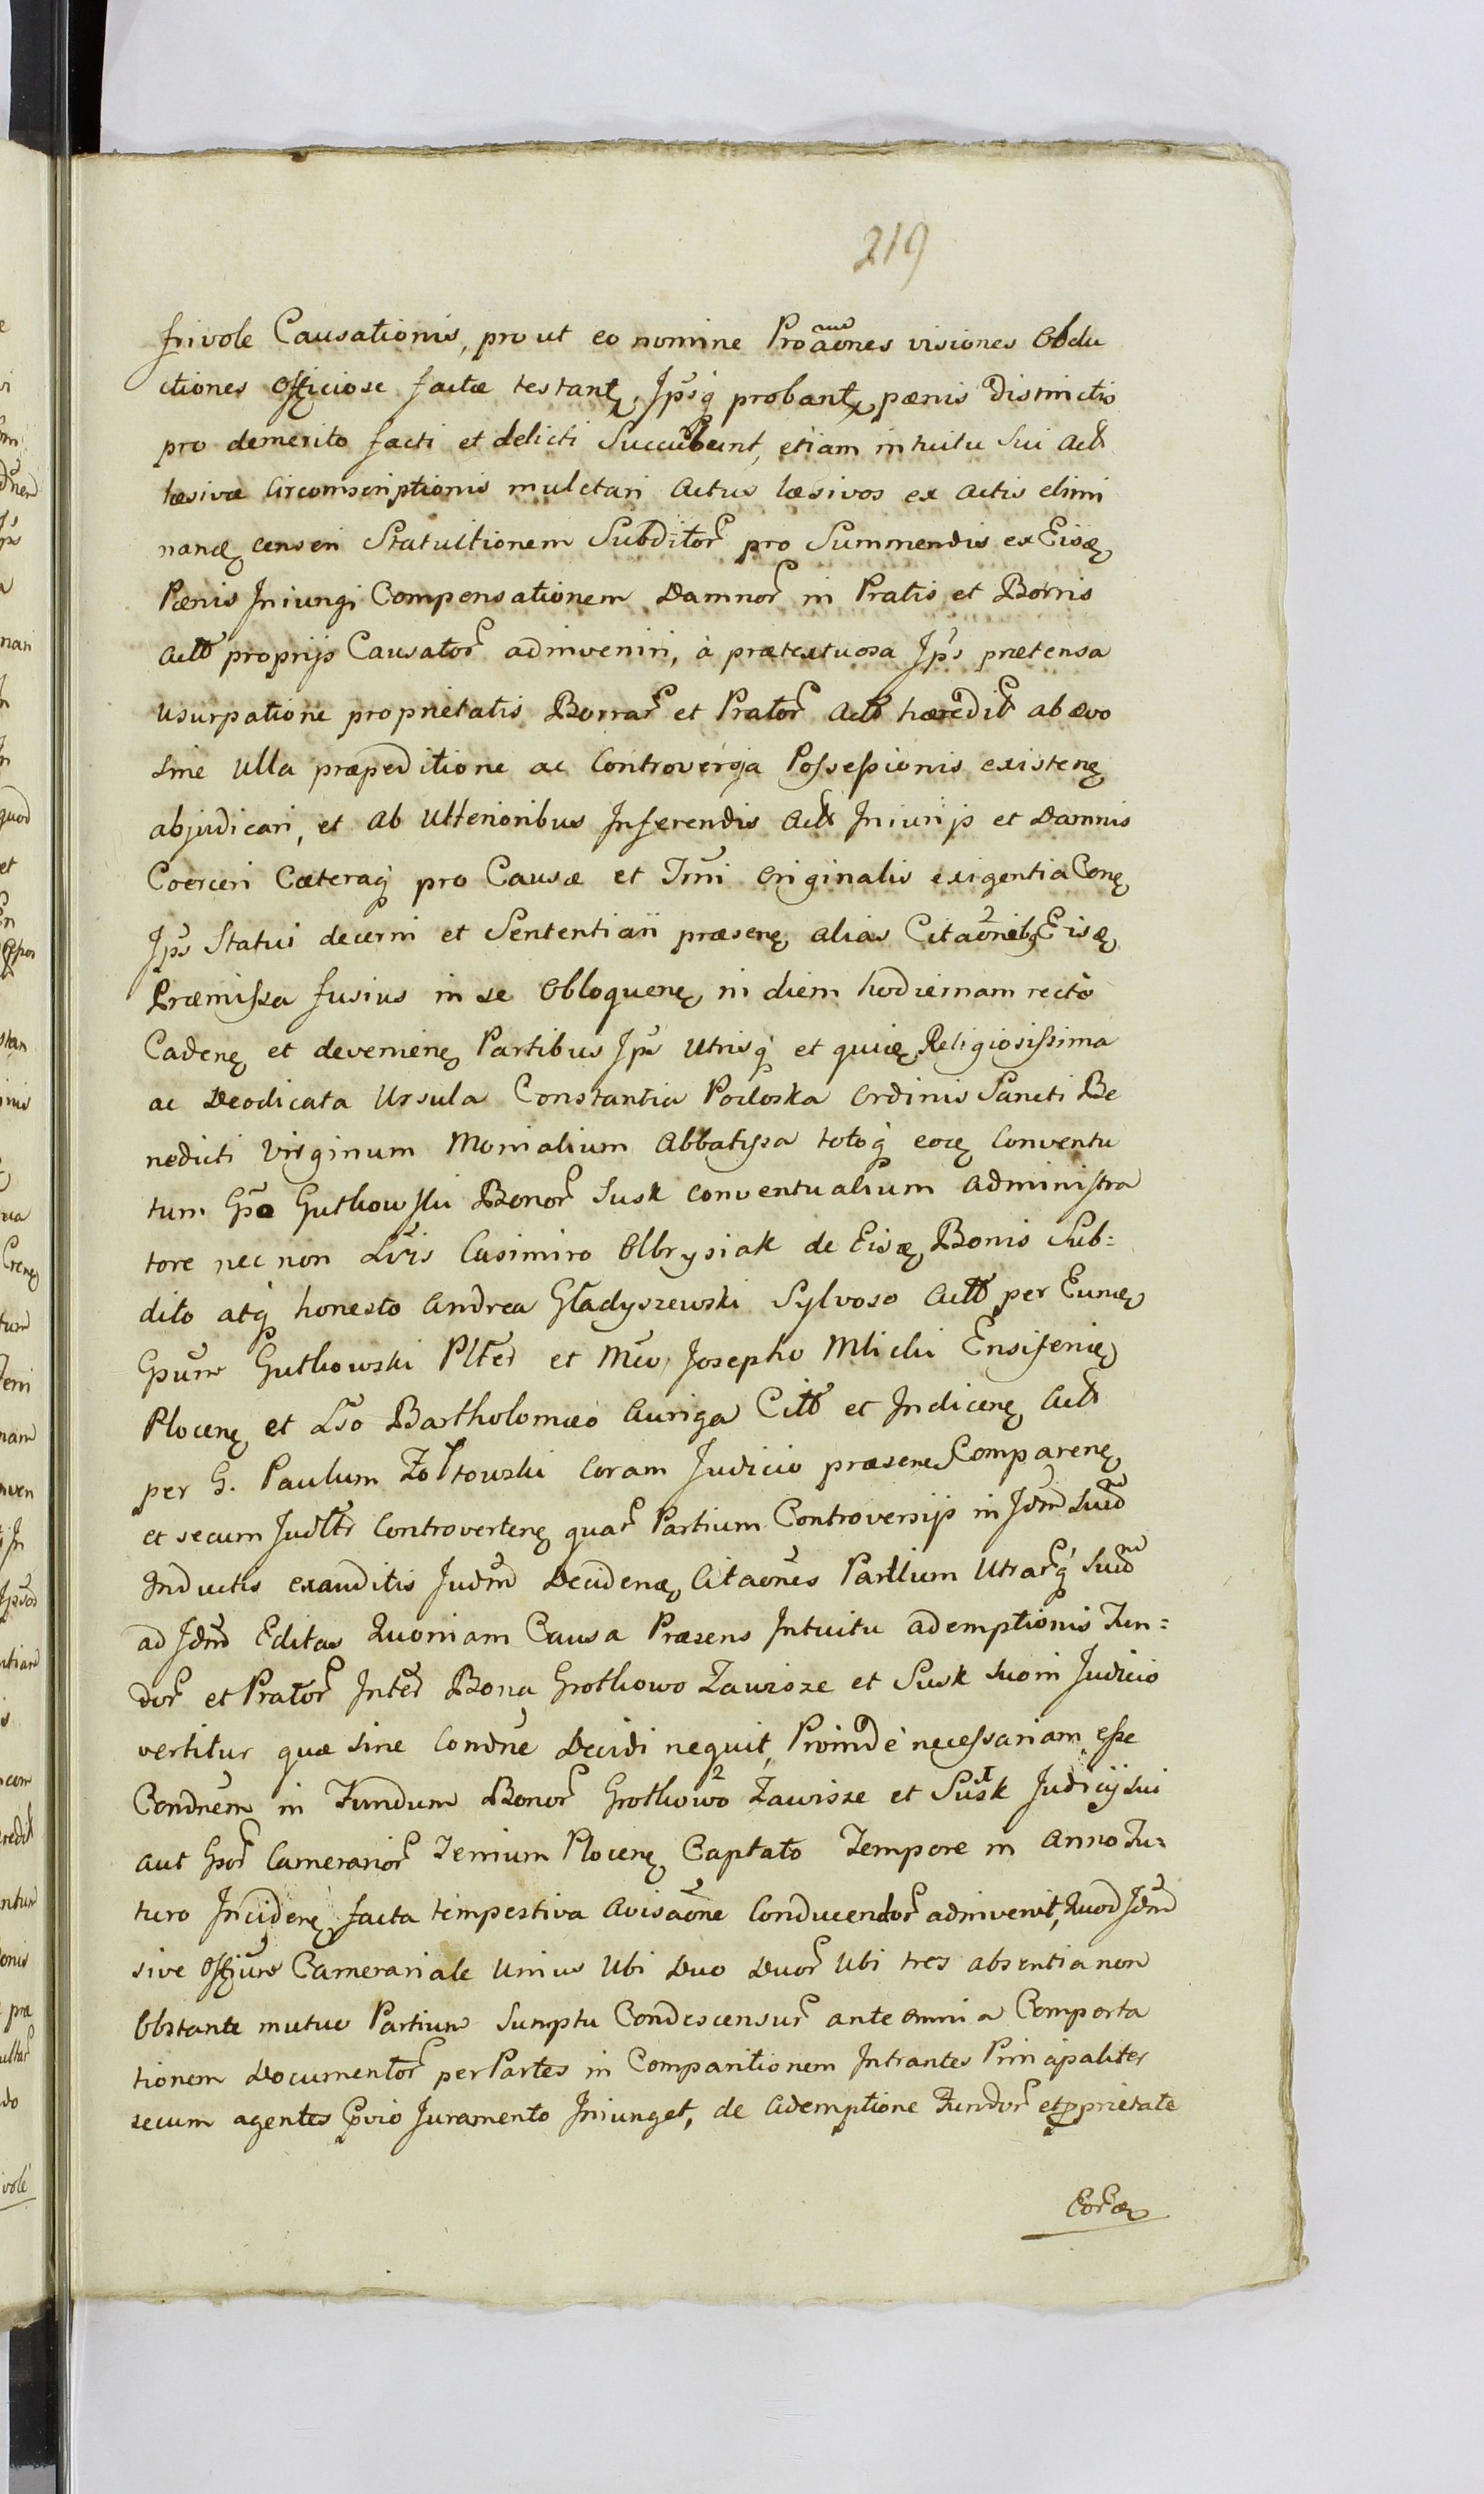 219
frivole Causationis, pro ut eo nomine Proãones visiones Obdu
ctiones Officiose factæ testantę, Jpsq probantę, pænis Distinctis
pro demerito facti et delicti Succubunt, etiam intuitu Sui Actt
læsivæ Circomscriptionis mulctari Actus læsivos ex Actis elimi
nanę censeri Statuitionem Subditor pro Summendis ex Eisdę
Pænis Jniungi Compensationem Damnor in Pratis et Borris
Actt proprijs Causator adinveniri, à prætextuosa Jps prætensa
Usurpatione proprietatis Borrar et Prator Actt hæredit ab ævo
sine Ulla præpeditione ac Controversja Possessionis existenę
abjudicari, et ab Ulterioribus Jnferendis Actt Jniurijs et Damnis
Coerceri Cæteraq pro Causæ et Trmi Originalis exigentia Cenę
Jps Statui decerni et Sententiari præsenę alias Citaõnibq Eisdę
Præmissa fusius in se Obloquenę, in diem hodiernam rectè
Cadenę et devenienę Partibus Jps Utrisq et quidę Religiosissima
ac Deodicata Ursula Constantia Podoska Ordinis Sancti Be
nedicti Virginum Monialium Abbatissa totoq eorę Conventu
tum Gso Gutkowski Bonor Susk conventualium Administra
tore nec non Lris Casimiro Olbrysiak de Eisdę Bonis Sub=
dito atq honesto Andrea Gładyszewski Sylvoso Actt per Eundę
Gsum Gutkowski Pltes et Mco Josepho Mlicki Ensiferię
Plocenę et Lso Bartholomæo Auriga Citt et Jndicenę Actt
per G. Paulum Zołtowski Coram Judicio præsenę Comparenę
et secum Judltr Controvertenę quar Partium Controversijs in Jdm Suũ
Jnductis exauditis Judm Decidenę, Citaones Partium Utrarq Suũ
ad Jdm Editas Quoniam Causa Præsens Jntuitu ademptionis Fun=
dor et Prator Jnter Bona Grotkowo Zawisze et Susk Suo in Judicio
vertitur quæ sine Condne Decidi nequit, Proindè necessariam esse
Condnem in Fundum Bonor Grotkowo Zawisze et Susk Judicij Sui
aut Gsor Camerarior Terrium Plocenę Captato Tempore in Anno Fu=
turo Jncidenę, facta tempestiva Avisaõne Conducendor adinvenit, Quod Jdm
sive Offium Camerariale Unius Ubi Duo Duor Ubi tres absentia non
Obstante mutuo Partium Sumptu Condescensur ante omnia Comporta
tionem Documentor per Partes in Comparitionem Jntrantes Principaliter
secum agentes prvio Juramento Jniunget, de Ademptione Fundor et pprietate
Eordę